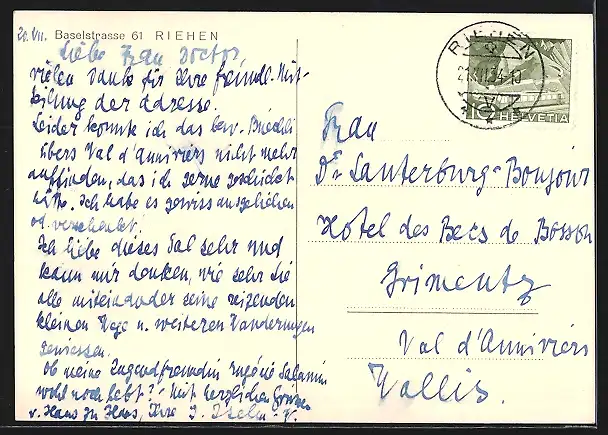 20. VII. Baselstrasse 61 RIEHEN
Liebe Frau Doctor,
vielen Dank für Ihre freundl. Mit-
teilung der Adresse.
Leider konnte ich das bew. Büechli
übers Val d'Anniviers nicht mehr
auffinden, das ich gerne geschickt
hätte. Ich habe es gewiss ausgeliehen
od. verschenkt!
Ich liebe dieses Tal sehr und
kann mir denken, wie sehr Sie
alle miteinander seine reizenden
kleinen Wege u. weiteren Wanderungen
geniessen.
Ob meine Jugendfreundin Salamin
wohl noch lebt? Mit herzlichen Grüssen
v. Haus zu Haus, Ihre
RIEHEN
HELVETIA
Frau
Dr. Lauterburg-Bonjour
Hotel des Becs de Bosson
Grimentz
Val d'Anniviers
Wallis.